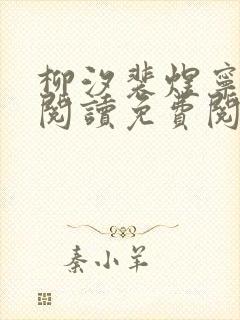 柳汐裴煜寧
閱讀免費閱
秦小羊